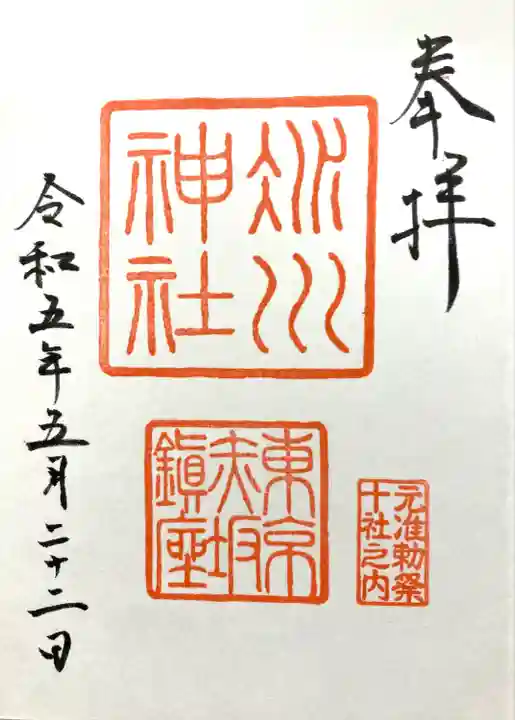 奉拝
氷川
神社
東京
赤坂
鎮座
元准勅祭
十社之内
令和五年五月二十二日